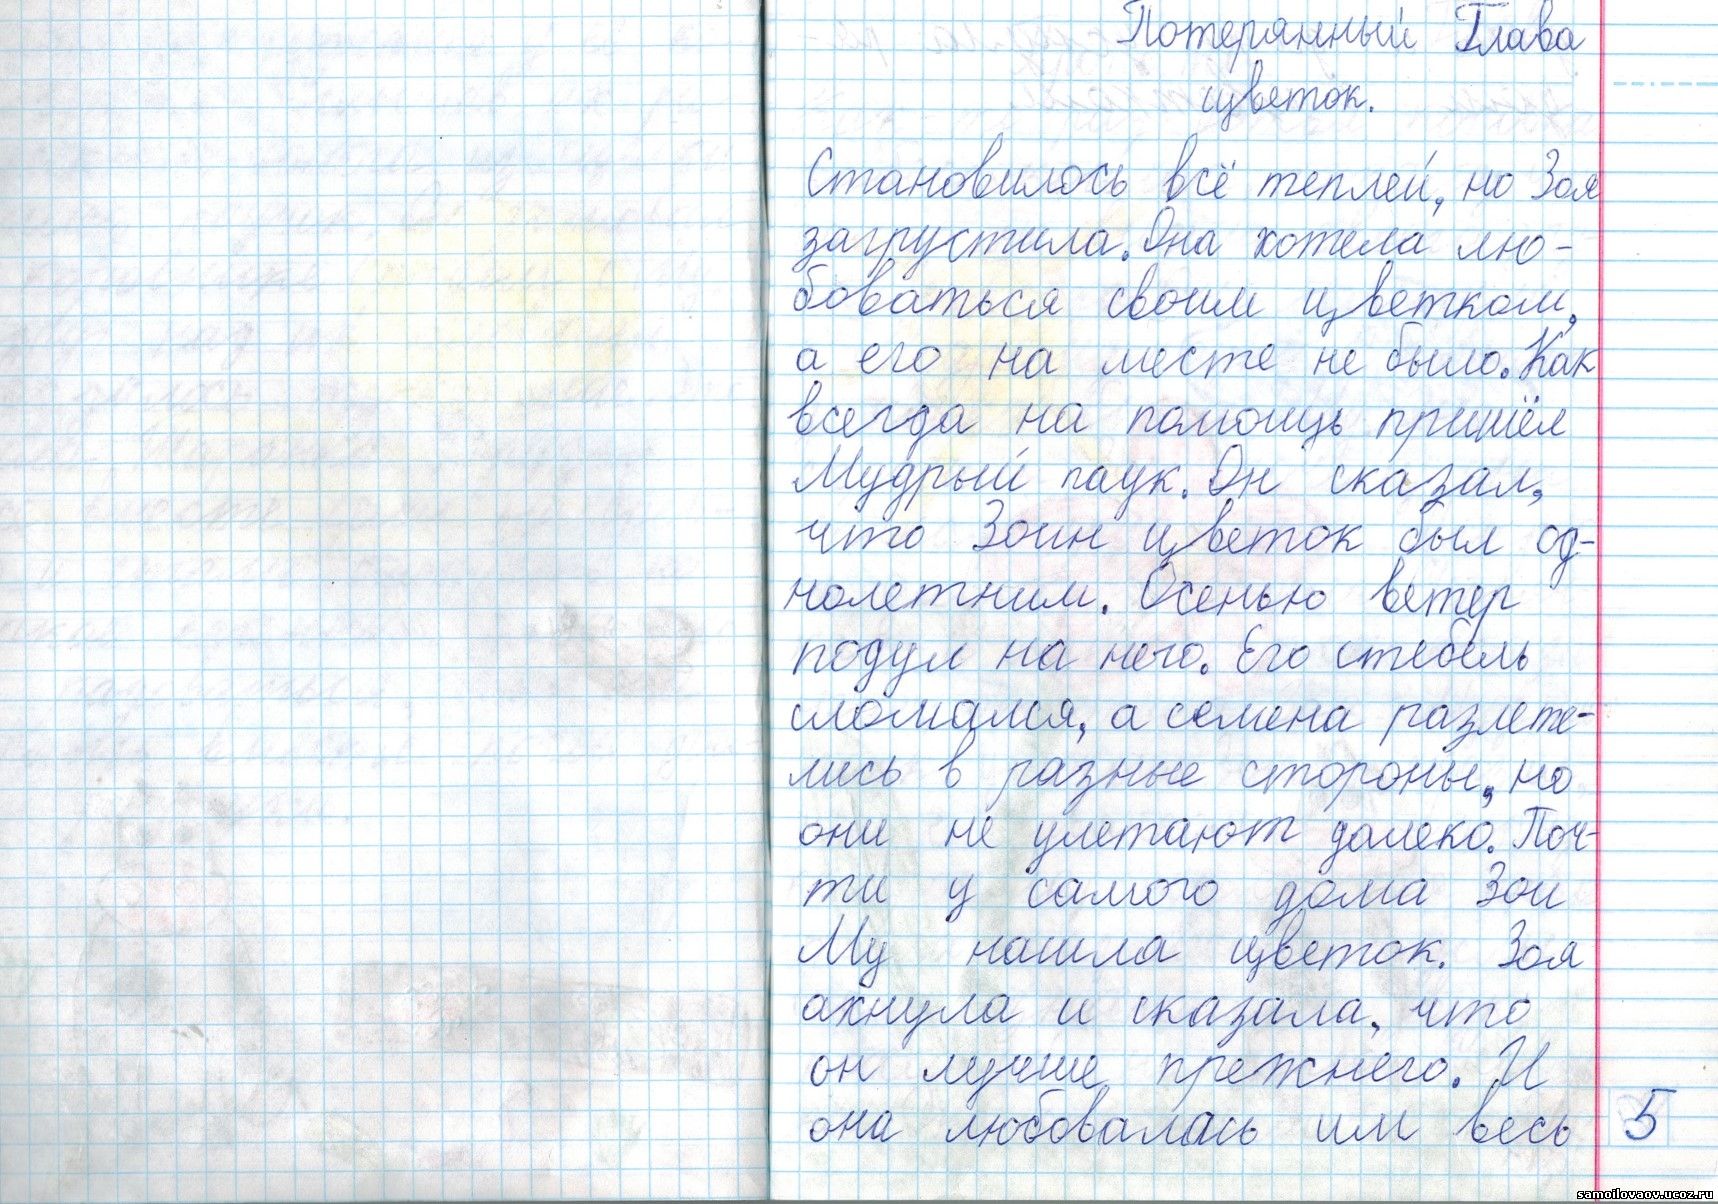 Потерянный Глава
цветок.
Становилось всё теплей, но Зоя
загрустила. Она хотела лю-
боваться своим цветком,
а его на месте не было. Как
всегда на помощь пришёл
Мудрый паук. Он сказал,
что Зоин цветок был од-
нолетним. Осенью ветер
подул на него. Его стебель
сломался, а семена разлете-
лись в разные стороны, но
они не улетают далеко. Поч-
ти у самого дома Зои
Му нашла цветок. Зоя
ахнула и сказала, что
он лучше прежнего. И
она любовалась им весь
5
samoilovaov.ucoz.ru